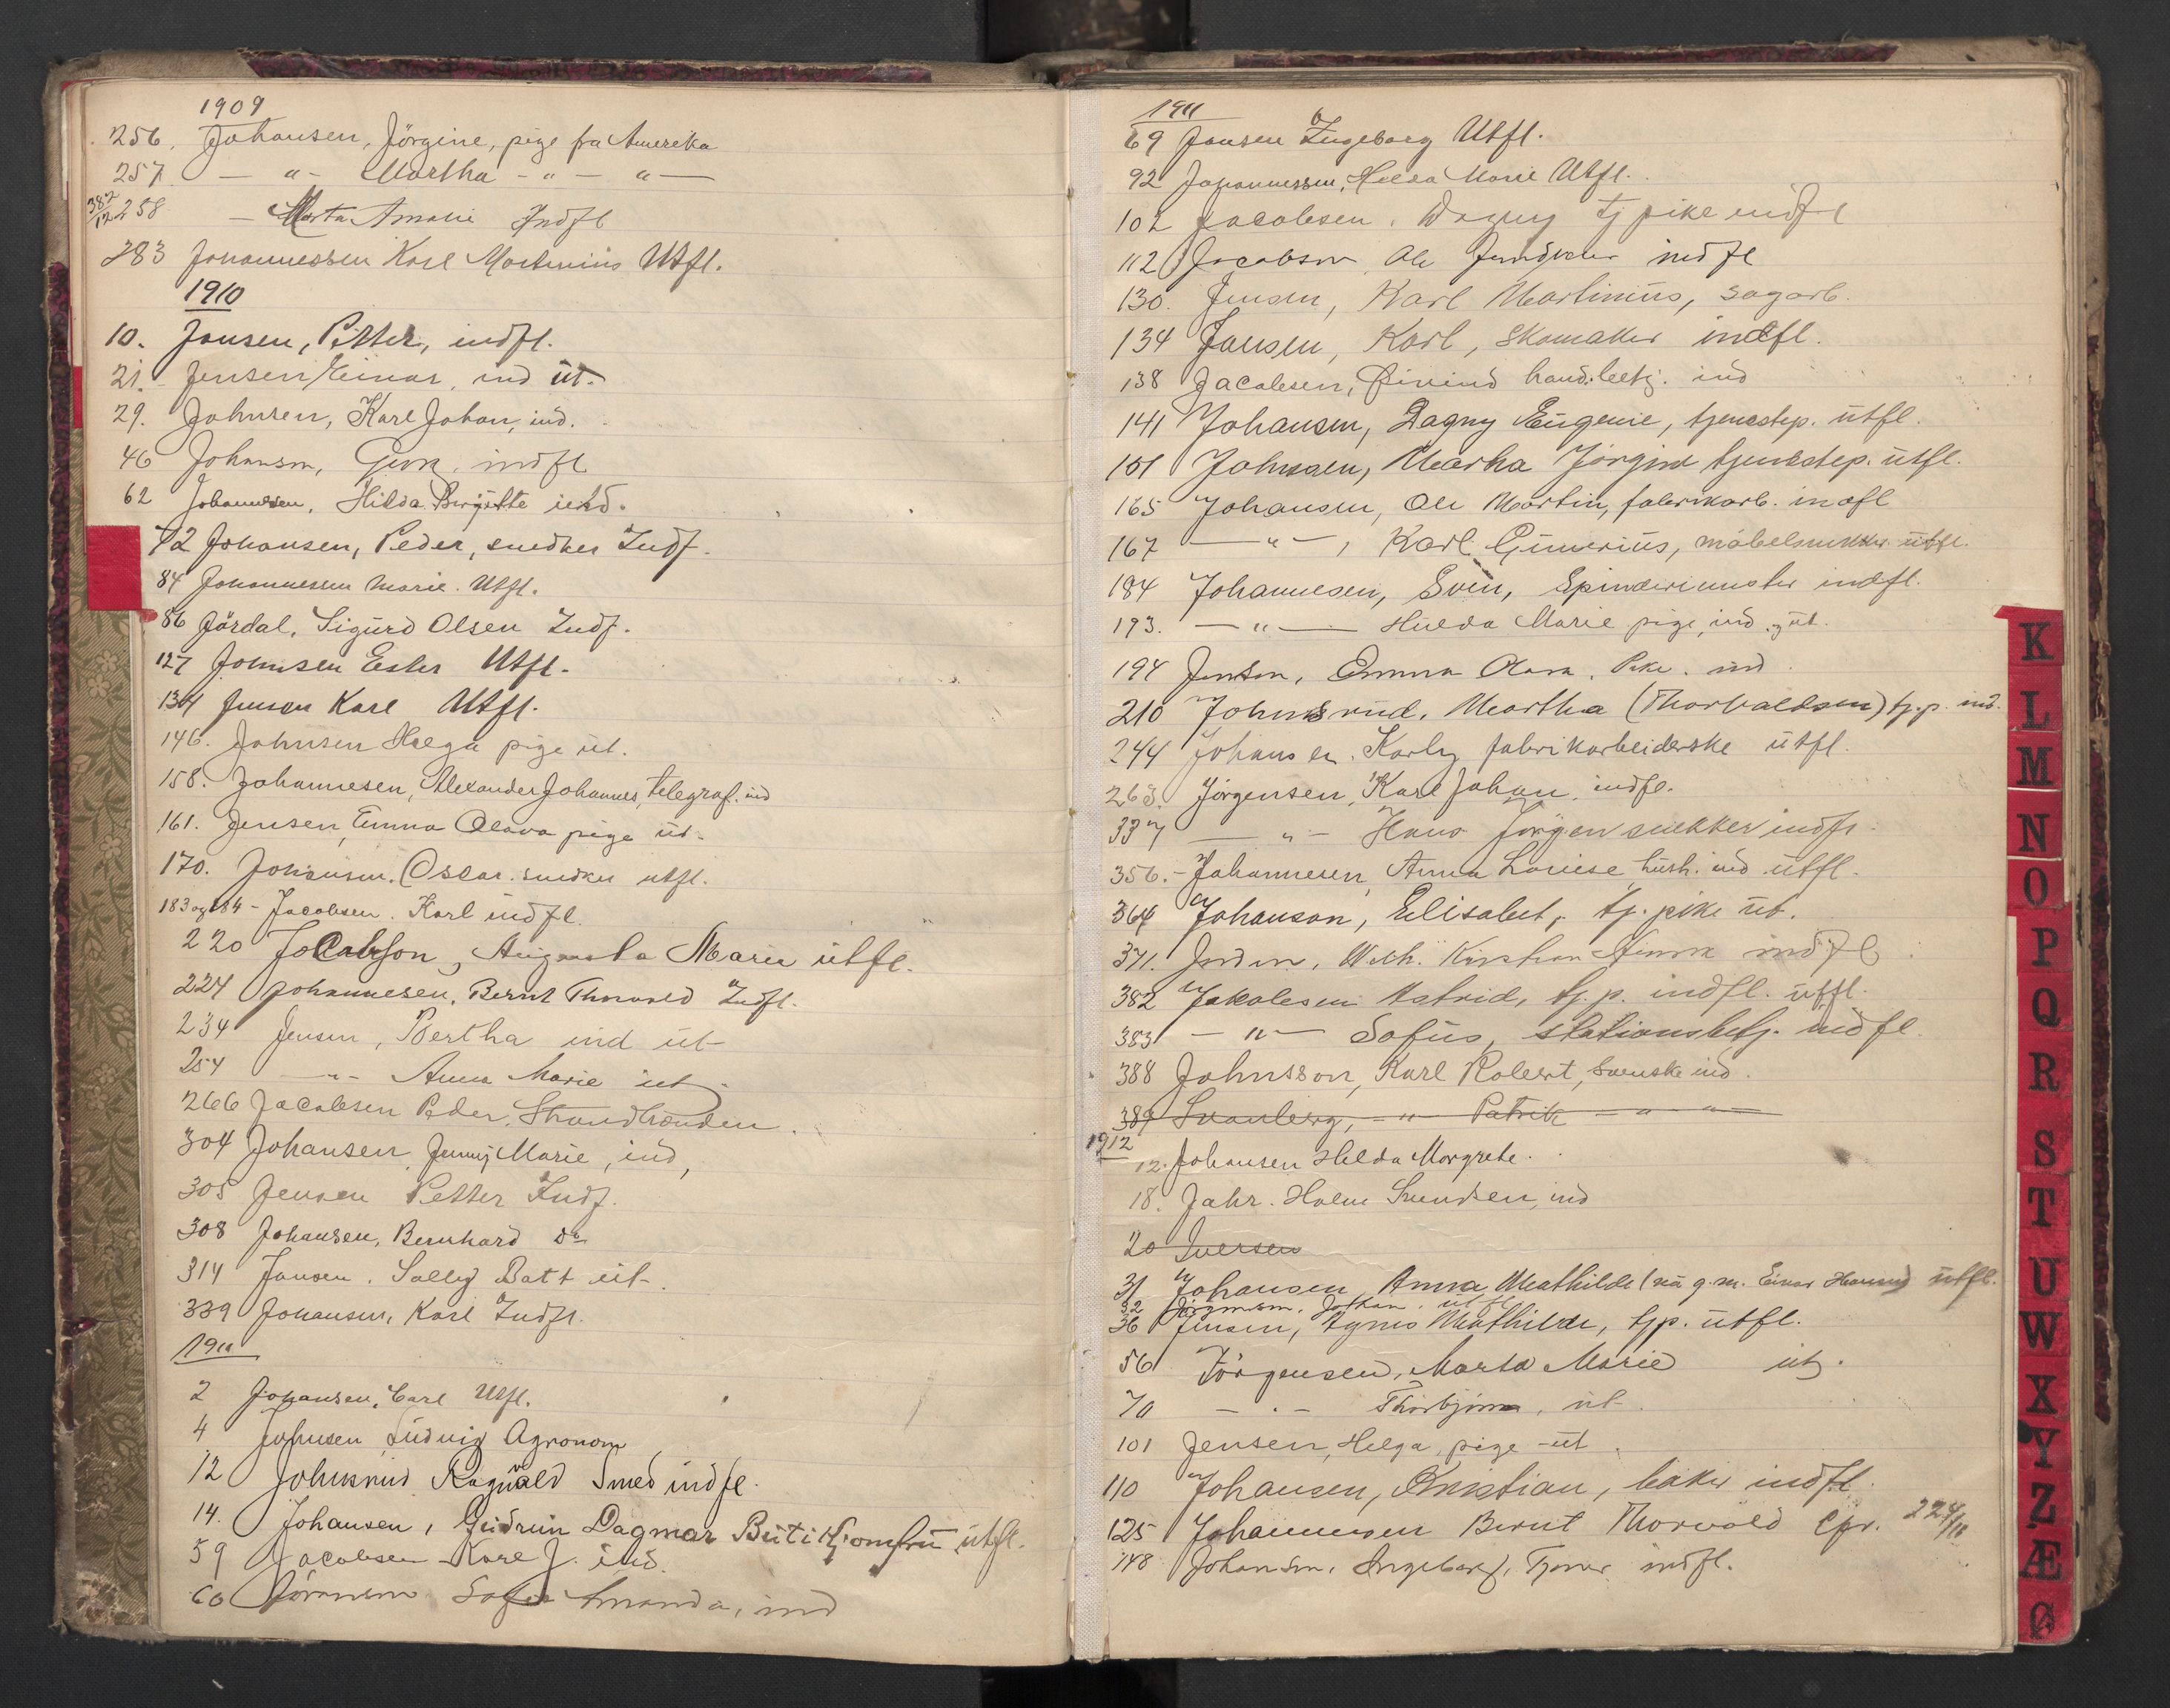 1909
256. Johansen, Jörgine, pige fra Amereka
257. — „ - Martha - „ - „ —
382/12 258 — Marta Amalie Indfl
383 Johannessen Karl Martinius Utfl.
1910
10. Jansen, Petter, indfl.
21. - Jensen, Einar, ind üt.
29. Johnsen, Karl Johan, ind.
46 Johansen, indfl
62 Johannesen, Hilda Birgitte ind.
72 Johansen, Peder, snedker Indf.
84 Johannessen Marie. Utfl.
86 Jördal, Sigurd Olsen Indf.
127 Johnsen Ester Utfl.
134 Jensen Karl Utfl.
146. Johnsen Helga pige üt.
158. Johannesen, Alexander Johannes, telegraf. ind
161. Jensen, Emma Olava pige üt.
170. Johansen. Oscar. snedker utfl.
183 og 184 - Jacobsen. Karl indfl.
220 Jocobson, Augusta Marie ütfl.
224 Johannesen, Bernt Thorvald Indfl.
234 Jensen, Bertha ind üt
254 - „ - Anna Marie üt.
266 Jacobsen Peder, Strandbranden.
304 Johansen, Jenny Marie, ind,
305 Jensen Petter Indf.
308 Johansen, Bernhard do
314 Jansen. Solley Batt üt.
339 Johansen, Karl Indfl.
1911
2 Johansen, Carl Utfl.
4 Johnsen Ludvig Agronom
12 Johnsrud Ragnvald Smed indfl.
14. Johansen, Gudrun Dagmar Butikjomfru ütfl.
59 Jacobsen Karl J. ind.
60 Sofie Amanda, ind
1911
69 Jansen Ingeborg Utfl.
92 Johannessen, Helda Marie Utfl.
102 Jacobsen. Dagny tj pike indfl
112 Jacobsen Ole indfl
130. Jensen, Karl Martinius, sagarb.
134 Jansen, Karl, Skomaker indfl.
138 Jacobsen, Øivind handl.betj. ind
141 Johansen, Dagny Eugenie, tjenestep. ütfl.
151 Johnsen, Martha Jörgine tjenestep. ütfl.
165 Johansen, Ole Martin, fabrikarb. indfl
167 — „ — , Karl Gunerius, möbelsnekker ütfl.
184 Johannesen, Sven, Spinderimester indfl.
193. — „ — Hulda Marie pige, ind. og üt.
194 Jensen, Emma Olava, Pike. ind.
210 Johnsrud, Martha (Thorvaldsen) tj.p. ind.
244 Johansen. Karly fabrikarbeiderske ütfl.
263. Jörgensen, Karl Johan, indfl.
337 — „ — Hans Jörgen snekker indfl.
356. - Johannesen, Anna Louise hush. ind ütfl.
364 Johanson, Elisabet, tj. pike üt.
371. Kristian indfl.
382 Jakobsen Astrid, tj. p. indfl. ütfl.
383 - „ - Sofus, stationsbetj. indfl.
388 Johnsson, Karl Robert, Svenske ind.
389 Svanberg, - „ - Patrik - „ - „ -
1912
12. Johansen Helda Margrete.
18. Jahr. Holm Svendsen, ind
20 Iversen
31 Johansen Anna Mathilde (nü g.m. Einar Hansen) ütfl.
32 Jörgensen. Johan. ütfl
36 Jensen, Agnes Mathilde, tjp. ütfl.
56 Jörgensen, Marta Marie üt.
70 - „ - Thorbjörn, üt.
101 Jensen, Helga, pige üt
110 Johansen, Kristian, baker indfl.
125 Johannesen Bernt Thorvald Cfr. 224/10
148 Johansen, Ingeborg, Tjener indfl.
K
L
M
N
O
P
Q
R
S
T
U
W
X
Y
Z
Æ
Ø